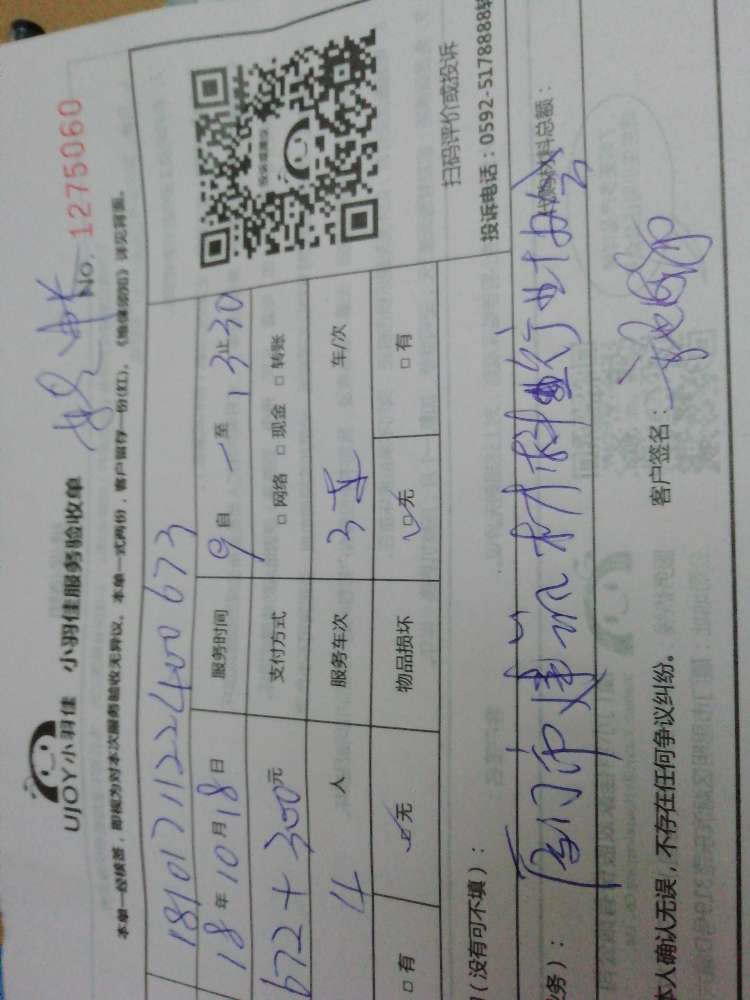 UJOY小羽佳 小羽佳服务验收单
No. 1275060
本单一经核签，即视为对本次服务验收无异议。本单一式两份，客户留存一份(红)。《维保须知》详见背面。
181017112240067 3
18年10月18日 服务时间 9 自 一 至 13 止 30
672+300元 支付方式 □网络 □现金 □转账
4 人 服务车次 3车 车/次
□有 ☑无 物品损坏 ☑无 □有
扫码评价或投诉
投诉电话：0592-5178888转
(没有可不填)：
材料总额：
务)： 厦门市建筑材料行业协会
客户签名：
本人确认无误，不存在任何争议纠纷。